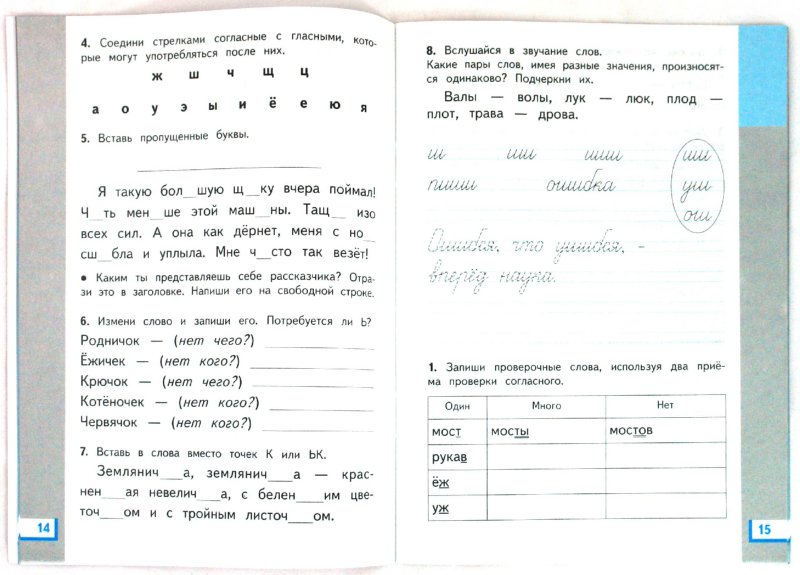 4. Соедини стрелками согласные с гласными, кото-
рые могут употребляться после них.
ж ш ч щ ц
а о у э ы и ё е ю я
5. Вставь пропущенные буквы.
Я такую бол__шую щ__ку вчера поймал!
Ч__ть мен__ше этой маш__ны. Тащ__ изо
всех сил. А она как дёрнет, меня с но__
сш__бла и уплыла. Мне ч__сто так везёт!
• Каким ты представляешь себе рассказчика? Отра-
зи это в заголовке. Напиши его на свободной строке.
6. Измени слово и запиши его. Потребуется ли Ь?
Родничок — (нет чего?)
Ёжичек — (нет кого?)
Крючок — (нет чего?)
Котёночек — (нет кого?)
Червячок — (нет кого?)
7. Вставь в слова вместо точек К или ЬК.
Землянич___а, землянич___а — крас-
нен___ая невелич___а, с белен___им цве-
точ___ом и с тройным листоч___ом.
14
8. Вслушайся в звучание слов.
Какие пары слов, имея разные значения, произносят-
ся одинаково? Подчеркни их.
Валы — волы, лук — люк, плод —
плот, трава — дрова.
ш иш иши ши
пиши ошибка уш
ош
Ошибся, что ушибся, –
вперёд наука.
1. Запиши проверочные слова, используя два приё-
ма проверки согласного.
Один Много Нет
мост мосты мостов
рукав
ёж
уж
15